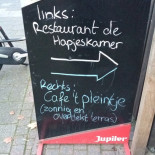 links:
Restaurant de
Hapjeskamer
Rechts:
Cafe 't pleintje
(zonnig en
overdekt terras)
Jupiler